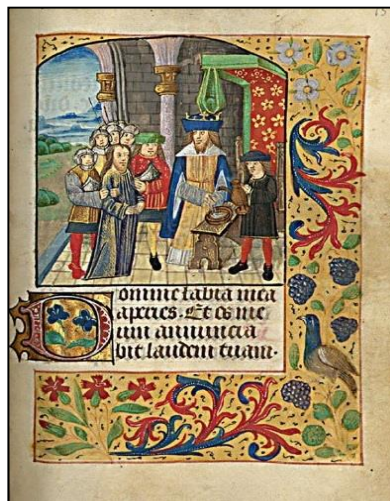 Domine labia mea
aperies. Et os me
um annuncia
bit laudem tuam.